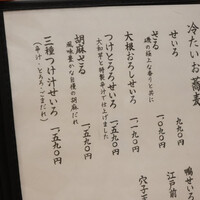 冷たいお蕎麦
せいろ 九九〇円
ざる 一、一〇〇円
磯の極上な香りと共に
大根おろしせいろ 一、一九〇円
つけとろろせいろ 一、五九〇円
大和芋と特製辛汁で仕上げました
胡麻ざる 一、五九〇円
風味豊かな自慢の胡麻だれ
三種つけ汁せいろ 一、五九〇円
（辛汁、とろろ、ごまだれ）
鴨せいろ
江戸前
穴子天